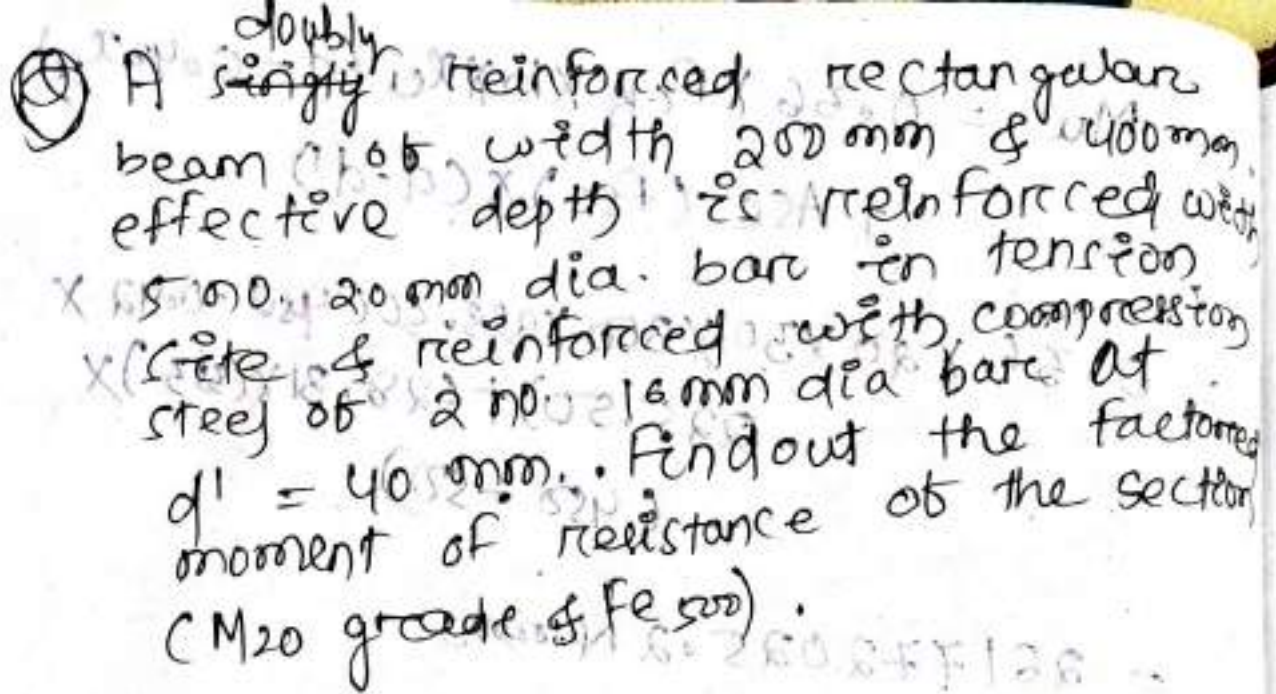 doubly
Q A singly reinforced rectangular
beam of width 200 mm & 400 mm
effective depth is reinforced with
5 no. 20 mm dia. bar in tension
site & reinforced with compression
steel of 2 no. 16 mm dia bar at
d' = 40 mm. Findout the factored
moment of resistance of the section
(M20 grade & Fe 500).